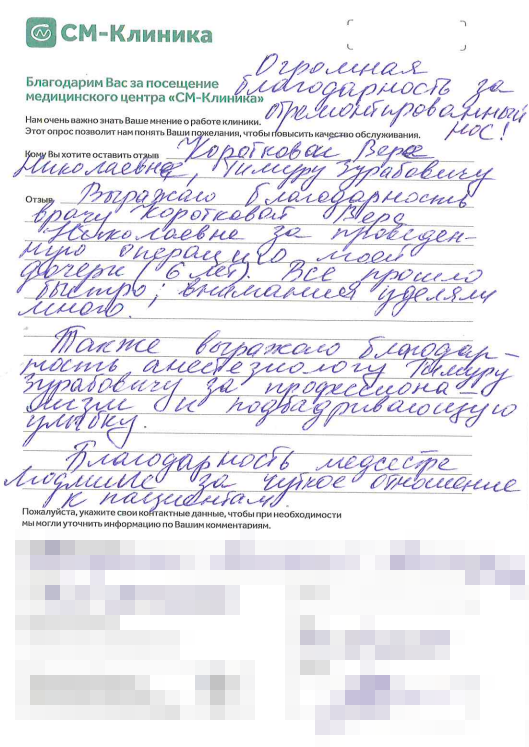 СМ-Клиника
Огромная
Благодарим Вас за посещение
благодарность за
медицинского центра «СМ-Клиника»
отремонтированный
Нам очень важно знать Ваше мнение о работе клиники.
нос!
Этот опрос позволит нам понять Ваши пожелания, чтобы повысить качество обслуживания.
Кому Вы хотите оставить отзыв Коротковой Вере
Николаевне, Тимуру Зурабовичу
Отзыв Выражаю благодарность
врачу Коротковой Вере
Николаевне за проведен-
ную операцию моей
дочери (6 лет). Все прошло
быстро; внимания уделяли
много.
Также выражаю благодар-
ность анестезиологу Тимуру
Зурабовичу за профессиона-
лизм и подбадривающую
улыбку.
Благодарность медсестре
Людмиле за чуткое отношение
к пациентам.
Пожалуйста, укажите свои контактные данные, чтобы при необходимости
мы могли уточнить информацию по Вашим комментариям.